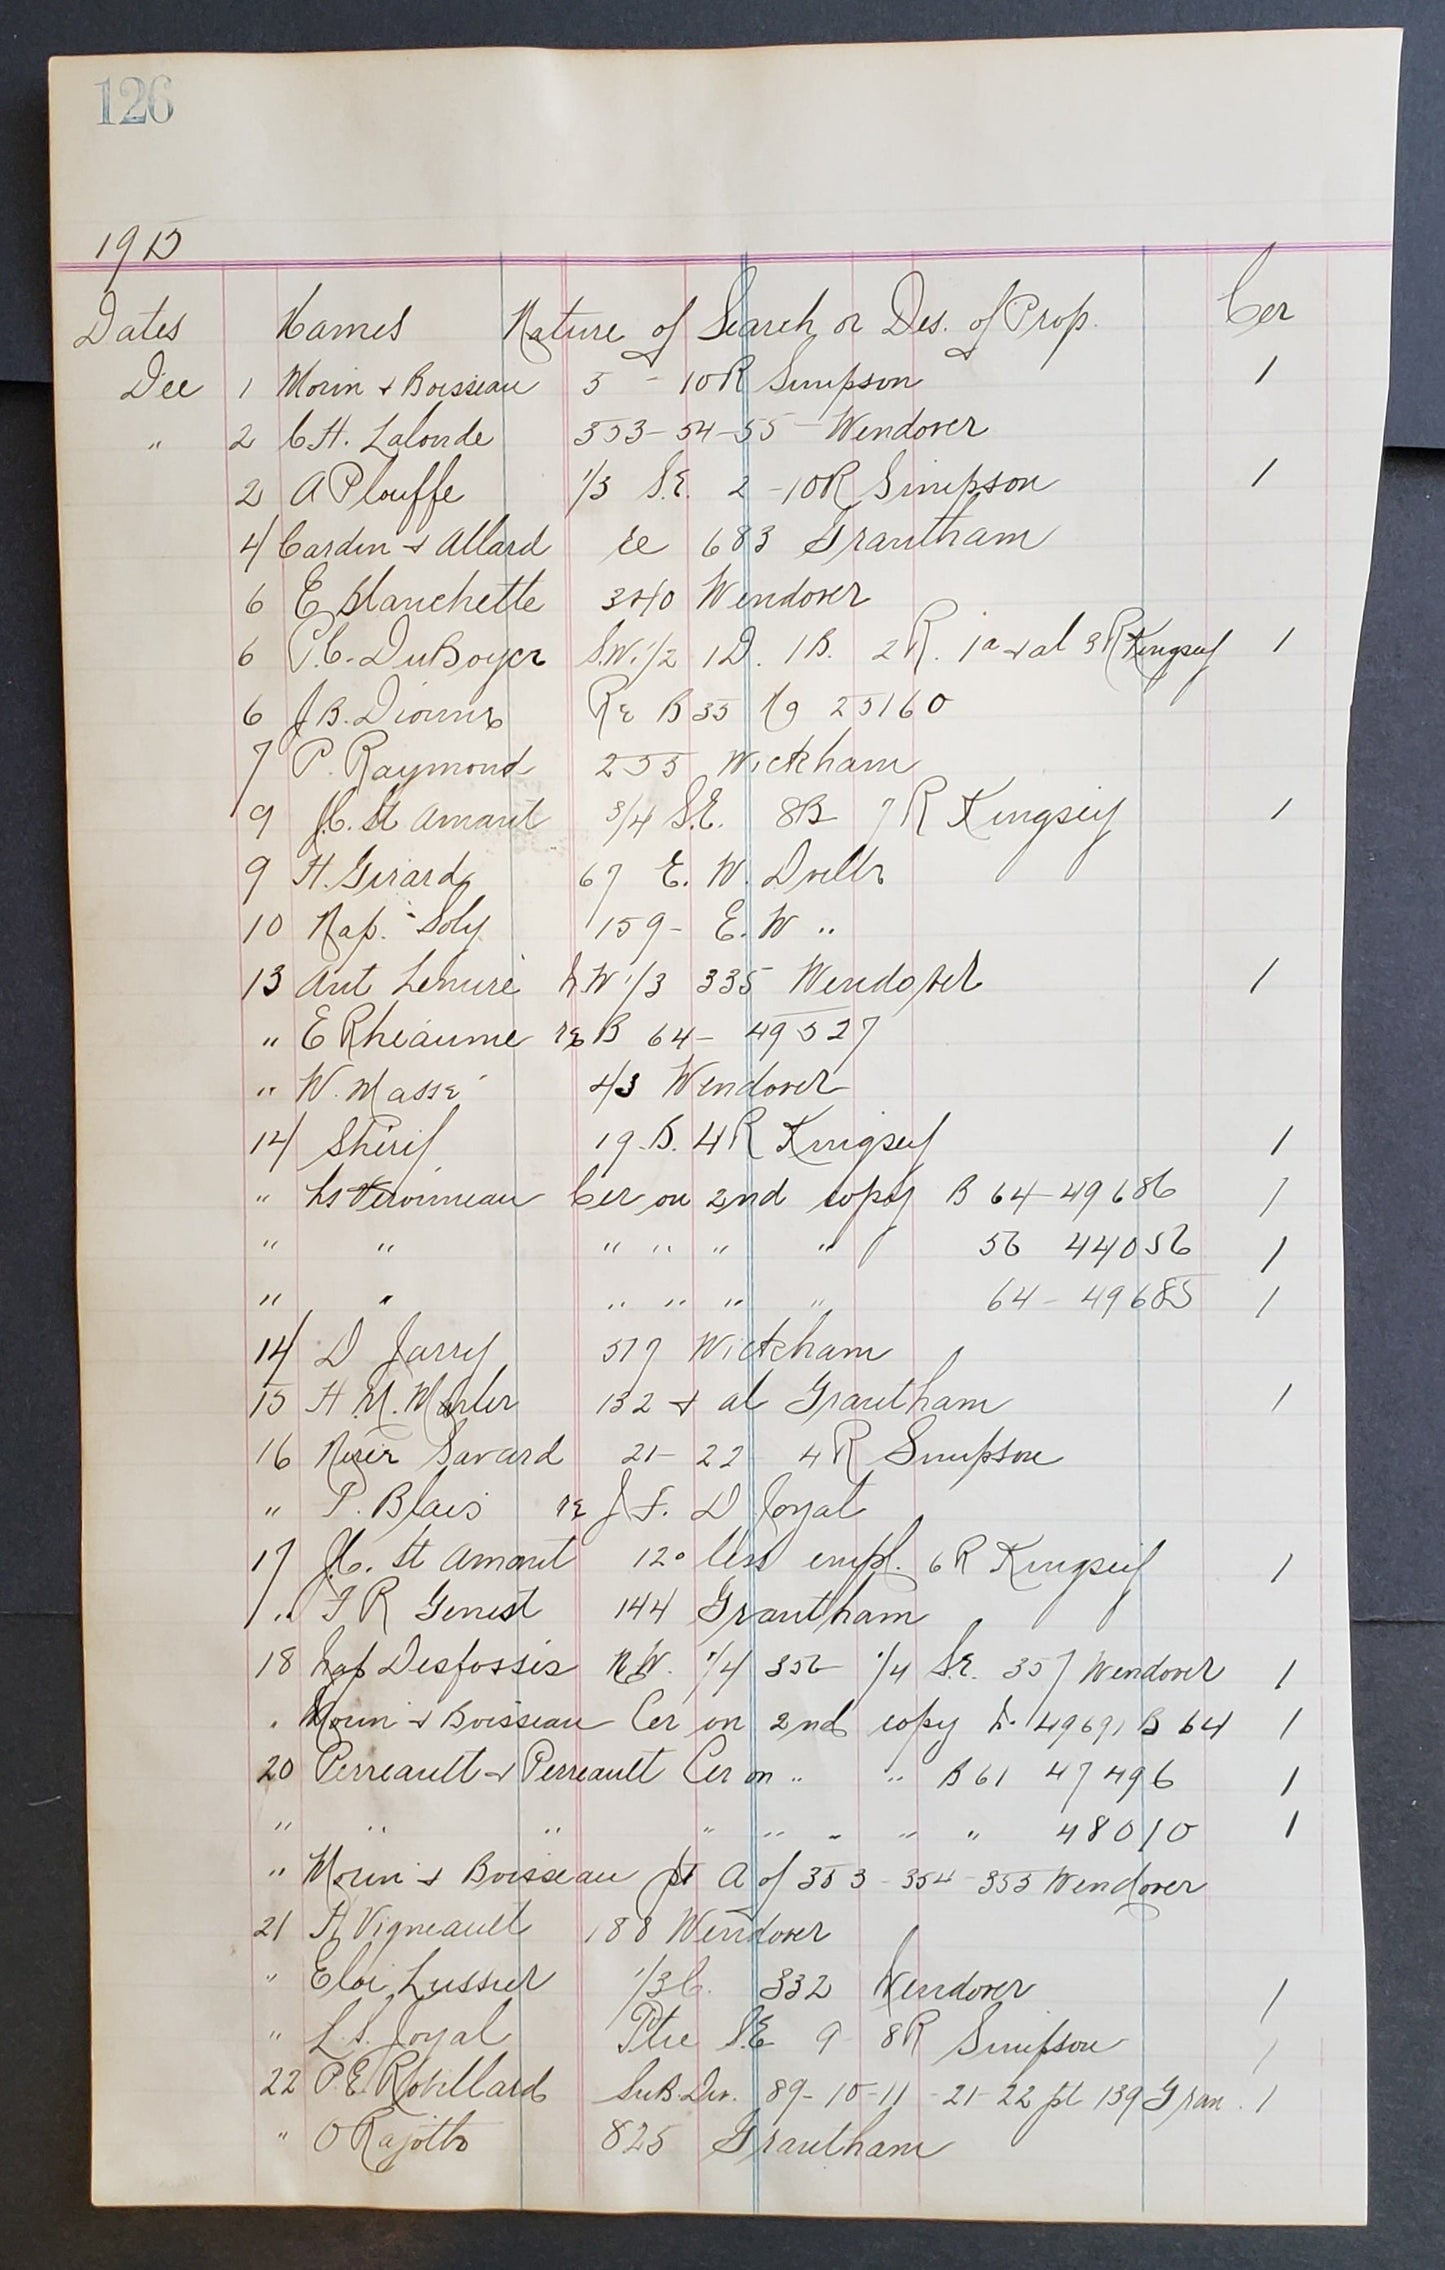 126
1915
Dates Names Nature of Search or Des. of Prop. Cer
Dec 1 Morin & Boisseau 5 - 10 R Simpson 1
" 2 C H. Lalonde 353-54-55 - Wendover
2 A Plouffe 1/3 S.E. 2 - 10 R Simpson 1
4 Cardin & Allard re 683 Grantham
6 E Blanchette 340 Wendover
6 P.C. DuBoyer S.W. 1/2 1D. 1B. 2 R. 1a & al 3 R Kingsey 1
6 J B. Dionne Re B 35 No 25160
7 P. Raymond 255 Wickham
9 J.C. St Amant 3/4 S.E. 8B 7 R Kingsey 1
9 H. Girard 67 E. W. Dville
10 Nap. Joly 159 - E. W "
13 Ant Lemire N W 1/3 335 Wendover 1
" E Rheaume re B 64 - 49527
" W. Massé 43 Wendover
14 Sherif 19 B. 4 R Kingsey 1
" Ls Veronneau Cer on 2nd copy B 64 - 49686 1
" " " " " " 56 44056 1
" " " " " " 64 - 49685 1
14 D Jarry 517 Wickham
15 H. M. Marler 132 & al Grantham 1
16 Savard 21 - 22 4 R Simpson
" P. Blais re J F. D Joyal
17 J.C. St Amant 12 less empl. 6 R Kingsey 1
" F R Genest 144 Grantham
18 Nap Desfossés N W. 1/4 356 1/4 S.E. 357 Wendover 1
" Morin & Boisseau Cer on 2nd copy N. 49691 B 64 1
20 Perreault & Perreault Cer on " " B 61 47496 1
" " " " " " " " 48010 1
" Morin & Boisseau pt A of 353 - 354 - 355 Wendover
21 H Vigneault 188 Wendover
" Eloi Lussier 1/3 C. 332 Wendover 1
" L. S. Joyal Ptie S.E 9 8 R Simpson 1
22 P. E. Robillard Sub. Div. 89 - 10 - 11 - 21 - 22 pt 139 Gran. 1
" O Rajotte 825 Grantham